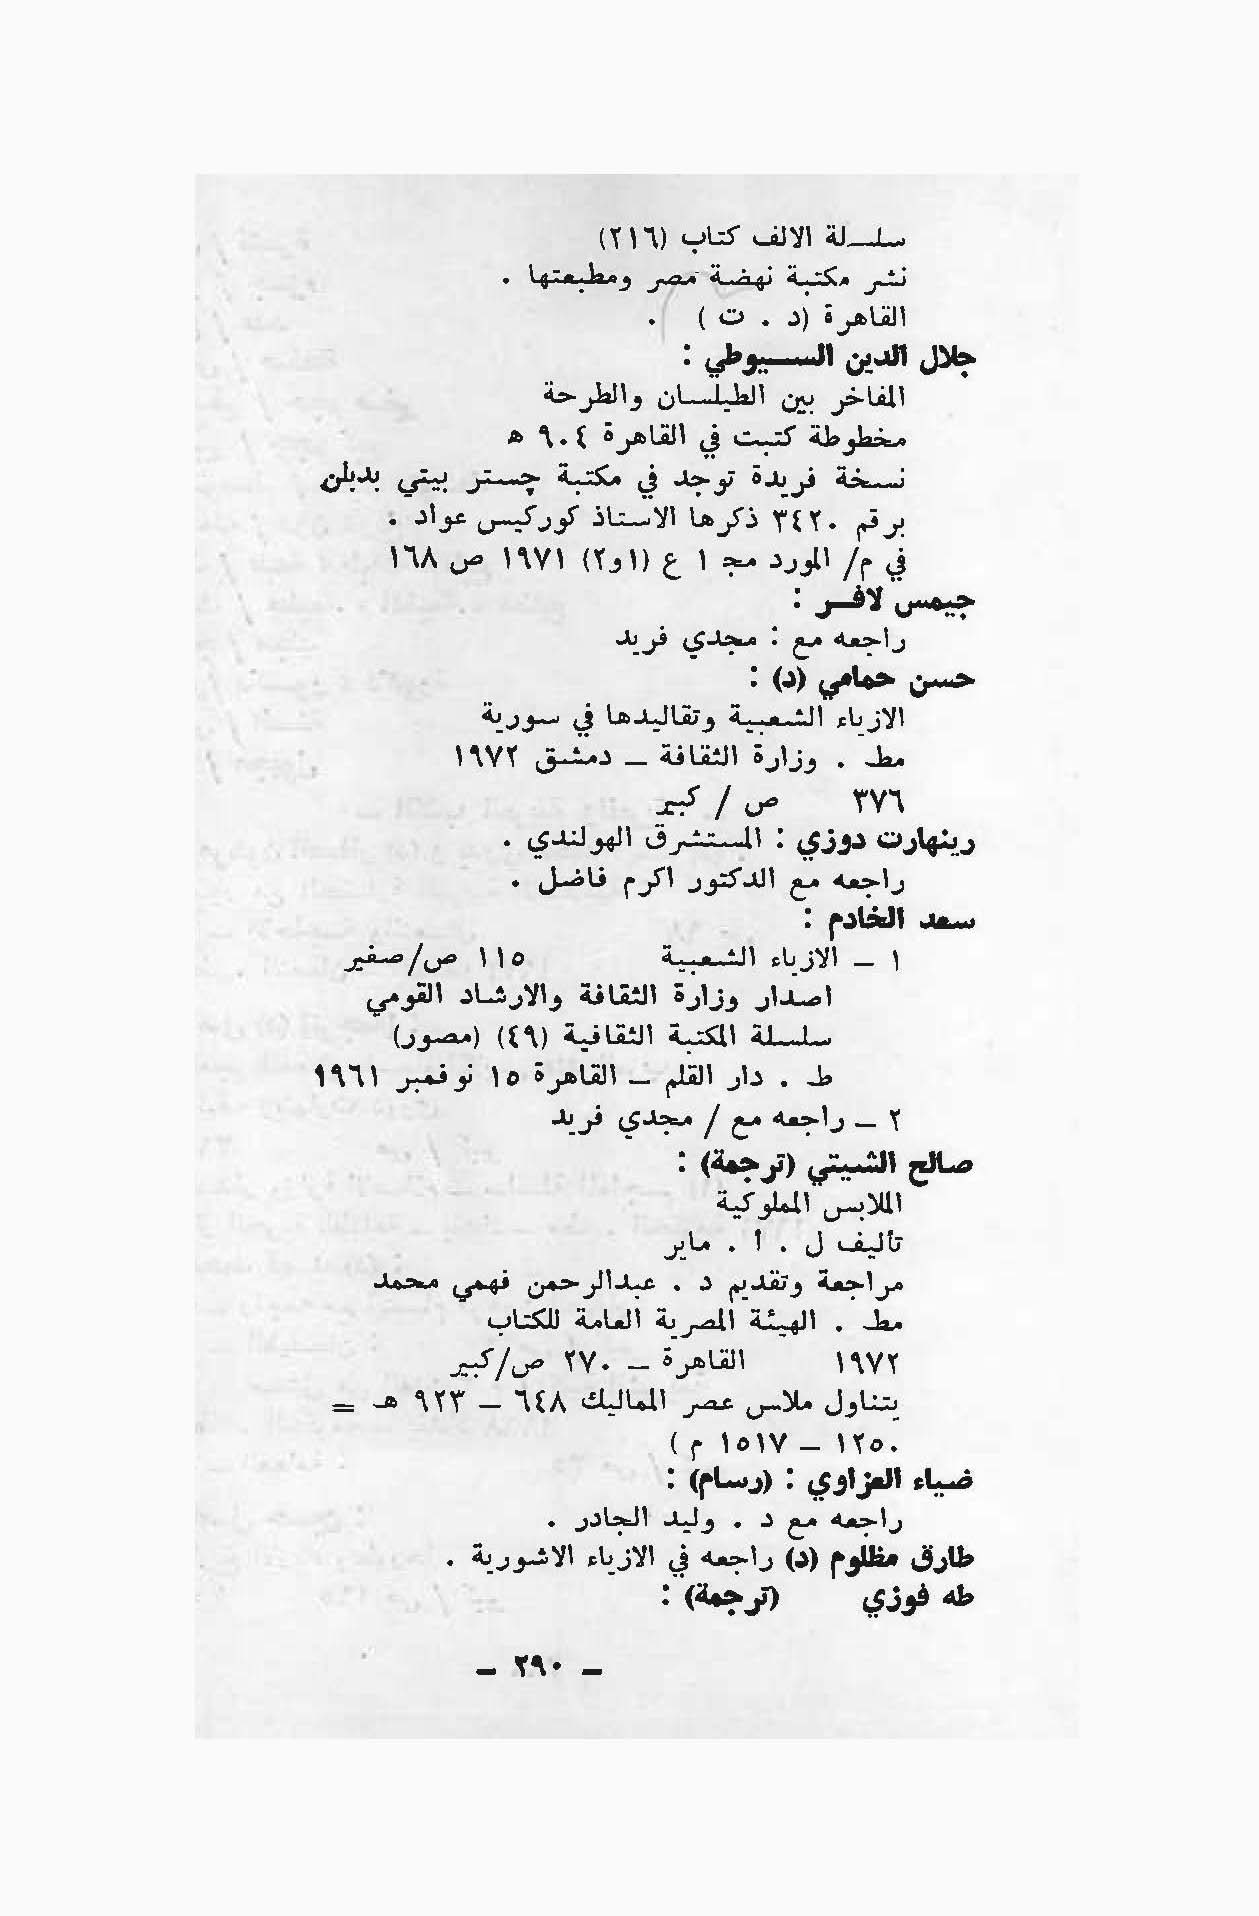 سلسلة الالف كتاب (٢١٦)
نشر مكتبة نهضة مصر ومطبعتها .
القاهرة (د . ت ) .
جلال الدين السيوطي :
المفاخر بين الطيلسان والطرحة
مخطوطة كتبت في القاهرة ٩٠٤ هـ
نسخة فريدة توجد في مكتبة چستر بيتي بدبلن
برقم ٣٤٢٠ ذكرها الاستاذ كوركيس عواد .
في م/ المورد مجـ ١ ع (١و٢) ١٩٧١ ص ١٦٨
جيمس لافر :
راجعه مع : مجدي فريد
حسن حمامي (د) :
الازياء الشعبية وتقاليدها في سورية
مطـ . وزارة الثقافة – دمشق ١٩٧٢
٣٧٦ ص / كبير
رينهارت دوزي : المستشرق الهولندي .
راجعه مع الدكتور اكرم فاضل .
سعد الخادم :
١ – الازياء الشعبية ١١٥ ص/صغير
اصدار وزارة الثقافة والارشاد القومي
سلسلة المكتبة الثقافية (٤٩) (مصور)
ط . دار القلم – القاهرة ١٥ نوفمبر ١٩٦١
٢ – راجعه مع / مجدي فريد
صالح الشيتي (ترجمة) :
الملابس المملوكية
تأليف ل . أ . ماير
مراجعة وتقديم د . عبدالرحمن فهمي محمد
مطـ . الهيئة المصرية العامة للكتاب
١٩٧٢ القاهرة – ٢٧٠ ص/كبير
يتناول ملابس عصر المماليك ٦٤٨ – ٩٢٣ هـ =
١٢٥٠ – ١٥١٧ م )
ضياء العزاوي : (رسام) :
راجعه مع د . وليد الجادر .
طارق مظلوم (د) راجعه في الازياء الاشورية .
طه فوزي (ترجمة) :
– ٢٩٠ –